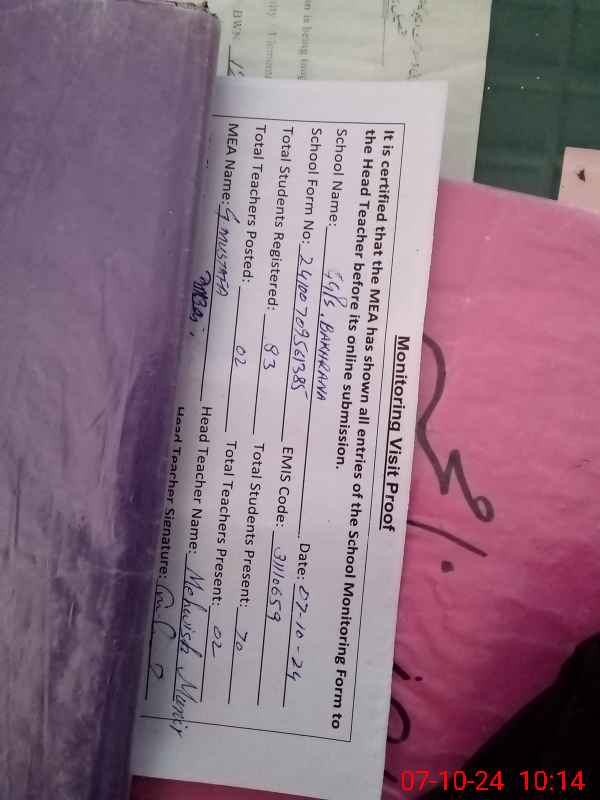 Monitoring Visit Proof
It is certified that the MEA has shown all entries of the School Monitoring Form to
the Head Teacher before its online submission.
School Name: GGPS, BAKHRANA
School Form No: 24100709561385 Date: 07-10-24
Total Students Registered: 93 EMIS Code: 31110659
Total Teachers Posted: 02 Total Students Present: 70
MEA Name: G MUSTAFA Total Teachers Present: 02
Head Teacher Name: Mehwish Munir
Head Teacher Signature:
07-10-24 10:14